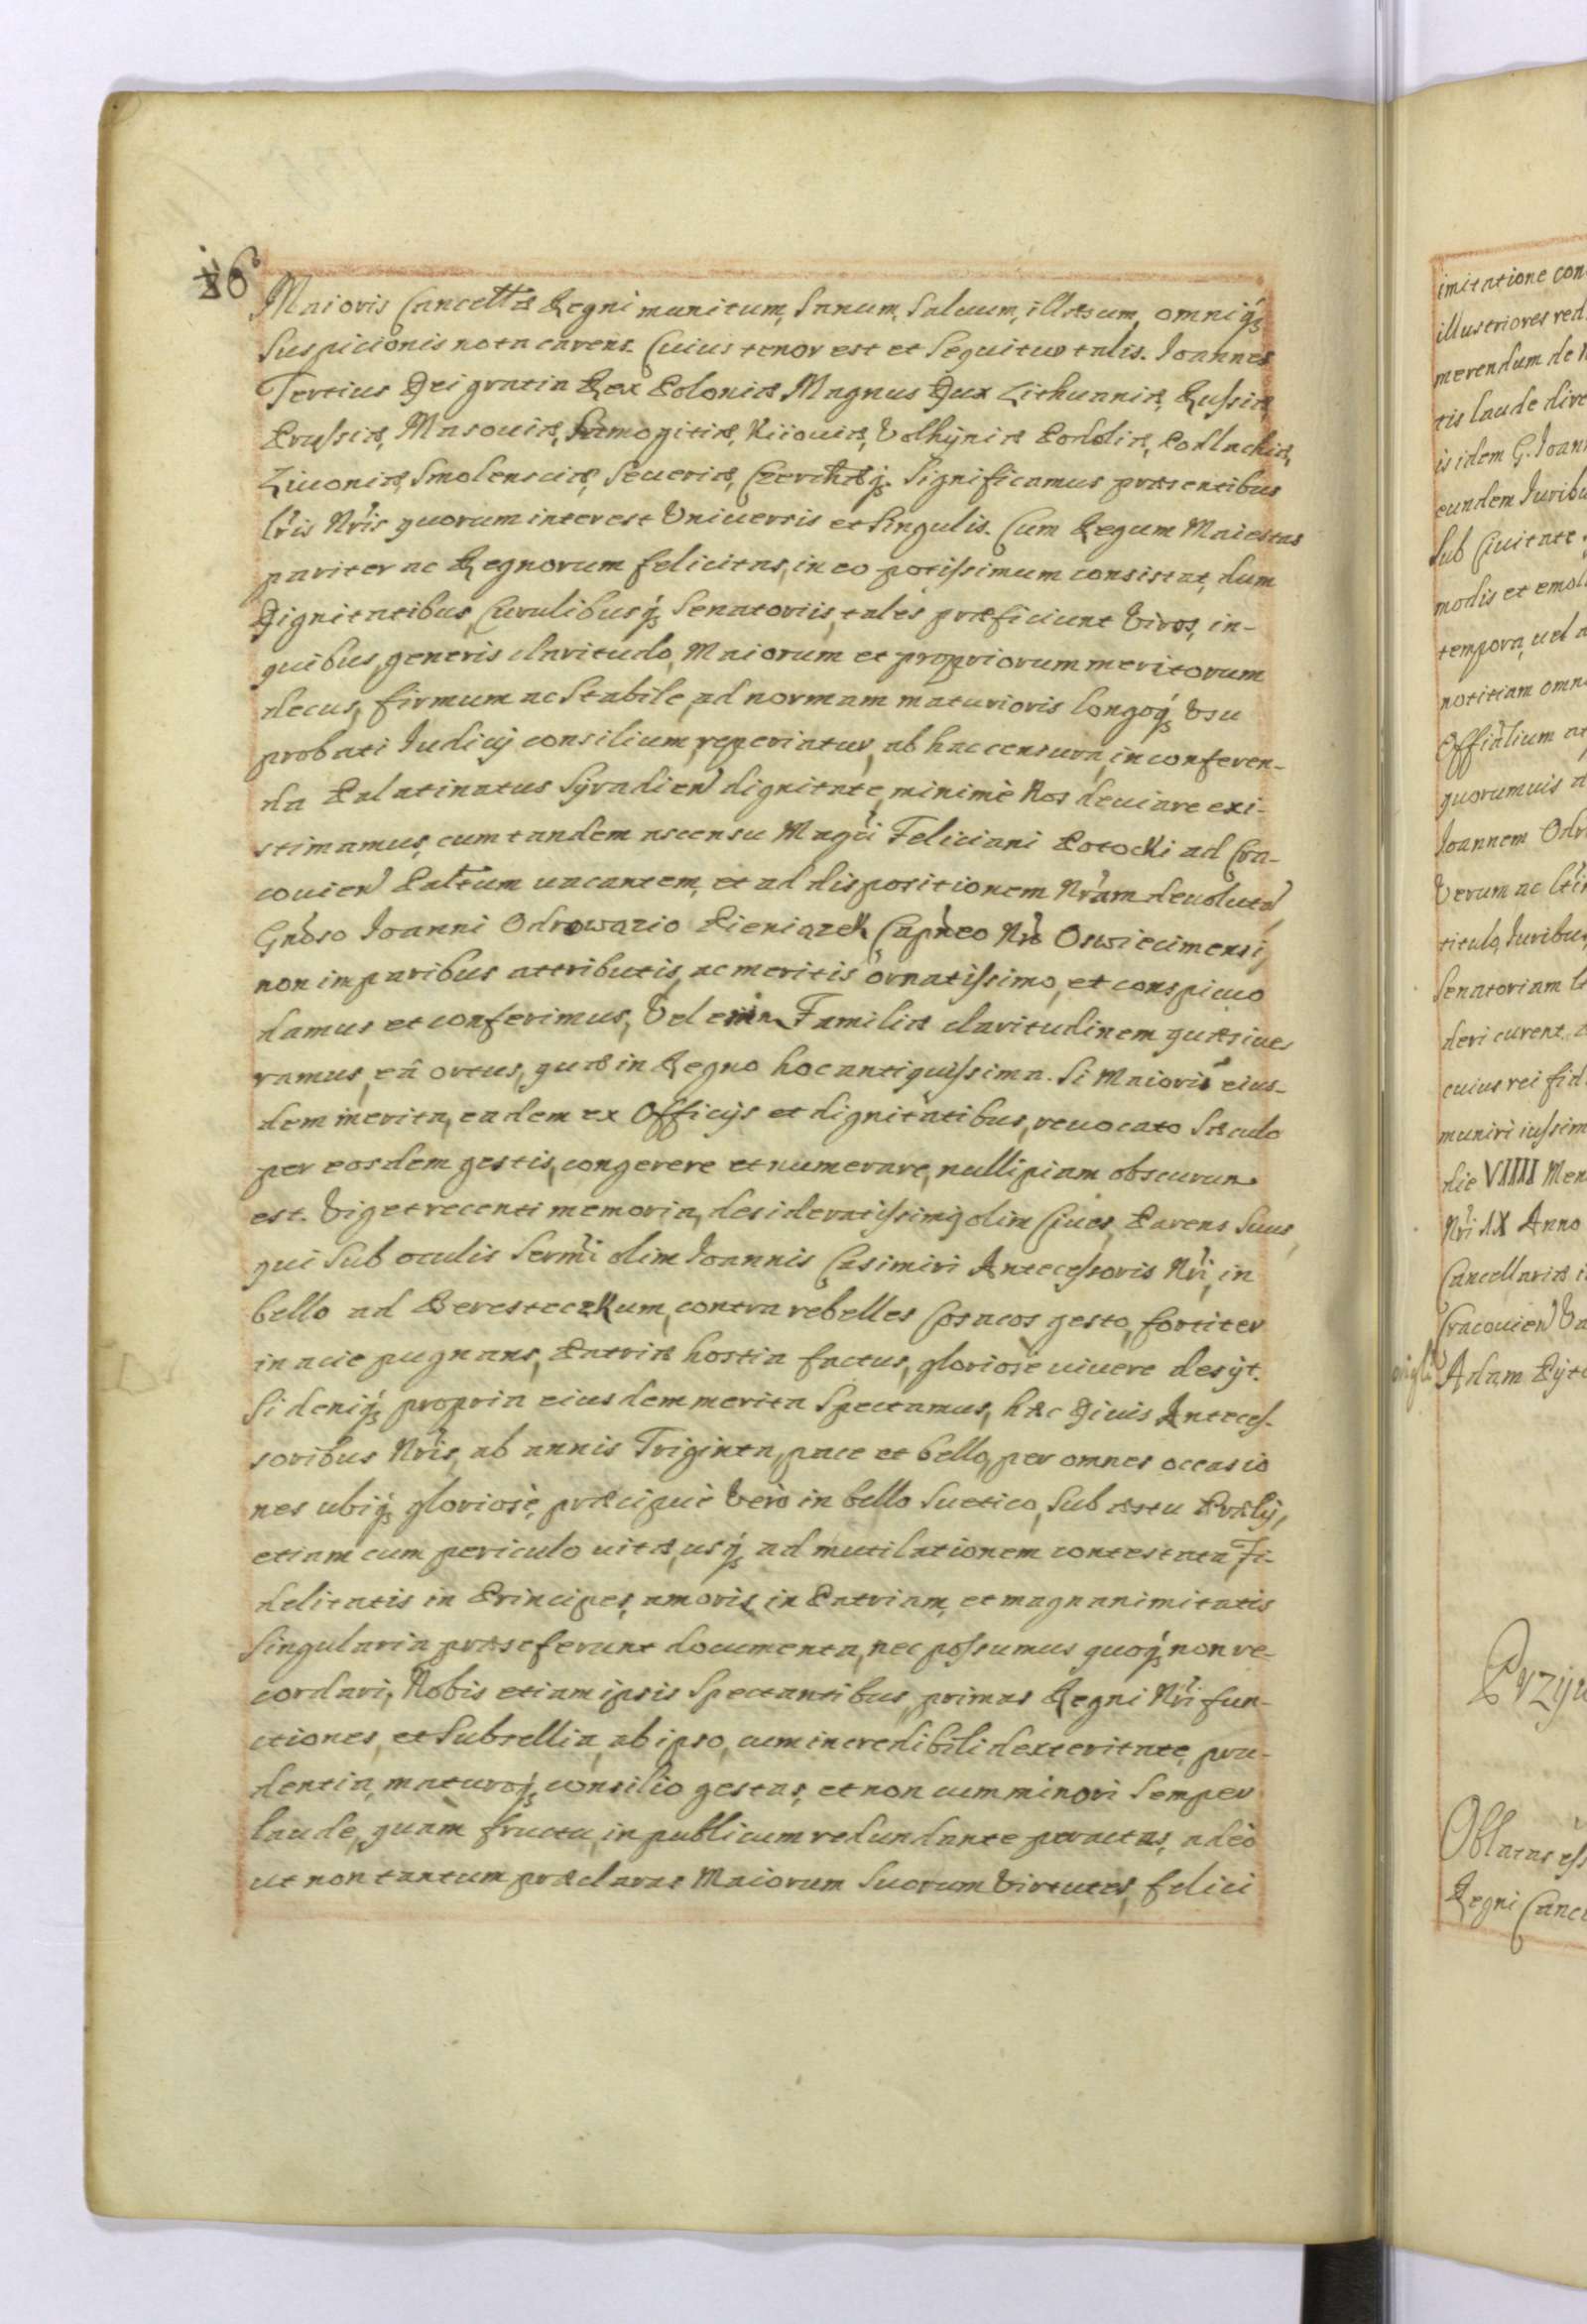 86
Maioris Cancellae Regni munitum, Sanum, Saluum, illaesum, omniq3
Suspicionis nota carens. Cuius tenor est et Sequitur talis. Ioannes
Tertius Dei gratia Rex Poloniae Magnus Dux Lithuaniae, Russiae,
Prussiae, Masouiae, Samogitiae, Kiiouiae, Volhyniae Podoliae, Podlachiae,
Liuoniae, Smolensciae, Seueriae, Czerniħaeq3. Significamus praesentibus
Lr̃is Nr̃is quorum interest Vniuersis et Singulis. Cum Regum Maiestas
pariter ac Regnorum felicitas, in eo potissimum consistat, dum
Dignitatibus, Curulibusq3 Senatoriis, tales praeficiunt Viros, in-
quibus, generis claritudo, Maiorum et propriorum meritorum
decus, firmum ac Stabile, ad normam maturioris longoq3 Vsu
probati Iudicij consilium, reperiatur, ab hac censura, in conferen-
da Palatinatus Syradien̄ dignitate, minimè Nos deuiare exi-
stimamus, cum tandem ascensu Magc̃i Feliciani Potocki ad Cra-
couien̄ Palt̃um uacantem, et ad dispositionem Nr̃am deuolutā,
Gnõso Ioanni Odrowazio Pieniazek Capñeo Nr̃o Oswiecimensi,
non imparibus attributis, ac meritis ornatissimo, et conspicuo
damus et conferimus, Vel enim Familiae claritudinem quaesiue-
ramus, eâ ortus, quae in Regno hoc antiquissima. Si Maioris eius-
dem merita, eadem ex Officijs et dignitatibus, reuocato Saeculo
per eosdem gestis, congerere et numerare, nulli piam obscurum
est. Viget recenti memoria, desideratissimi, olim Ciues, Parens Suus,
qui Sub oculis Serm̃i olim Ioannis Casimiri Antecessoris Nr̃i, in
bello ad Beresteczkum, contra rebelles Cosacos gesto, fortiter
in acie pugnans, Patriae hostia factus, gloriosè uiuere desijt.
Si deniq3 propria eiusdem merita Spectamus, haec Diuis Anteces-
soribus Nr̃is, ab annis Triginta, pace et bello, per omnes occasio
nes ubiq3 gloriosè, praecipuè Verò in bello Suetico, Sub aestu Praelij,
etiam cum periculo uitae, usq3 ad mutilationem contestata Fi-
delitatis in Principes, amoris in Patriam, et magnanimitatis
Singularia praeseferunt documenta, nec possumus quoq3 non re-
cordari, Nobis etiam ipsis Spectantibus, primas Regni Nr̃i fun-
ctiones, et Subsellia, ab ipso, cum incredibili dexteritate, pru-
dentia, maturoq3 consilio gestas, et non cum minori Semper
laude, quam fructu, in publicum redundante peractas, adeò
ut non tantum praeclaras Maiorum Suorum Virtutes, felici
imitatione con
illustriores red
merendum de N
tis laude dire
is idem G. Ioan
eundem Iuribu
Sub Ciuitate
modis et emol
tempora, uel a
notitiam omn
Offiãlium a
quorumuis a
Ioannem Odr
Verum ac
titulo, Iuribus
Senatoriam
deri curent,
cuius rei fid
muniri iussim
die VIIII Men
Nr̃i IX Anno
Cancellariae
Cracouien̄ Va
Adam Pyt
Przyw
Oblatas ess
Regni Canc